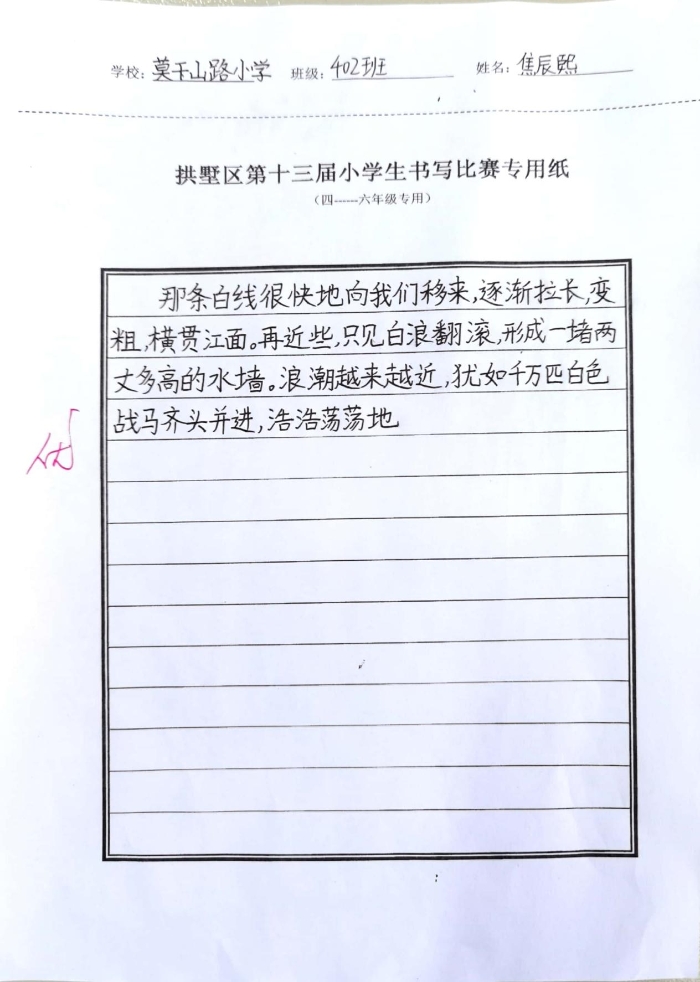 学校：莫干山路小学 班级：402班 姓名：焦辰熙
拱墅区第十三届小学生书写比赛专用纸
（四------六年级专用）
那条白线很快地向我们移来，逐渐拉长，变
粗，横贯江面。再近些，只见白浪翻滚，形成一堵两
丈多高的水墙。浪潮越来越近，犹如千万匹白色
战马齐头并进，浩浩荡荡地
优